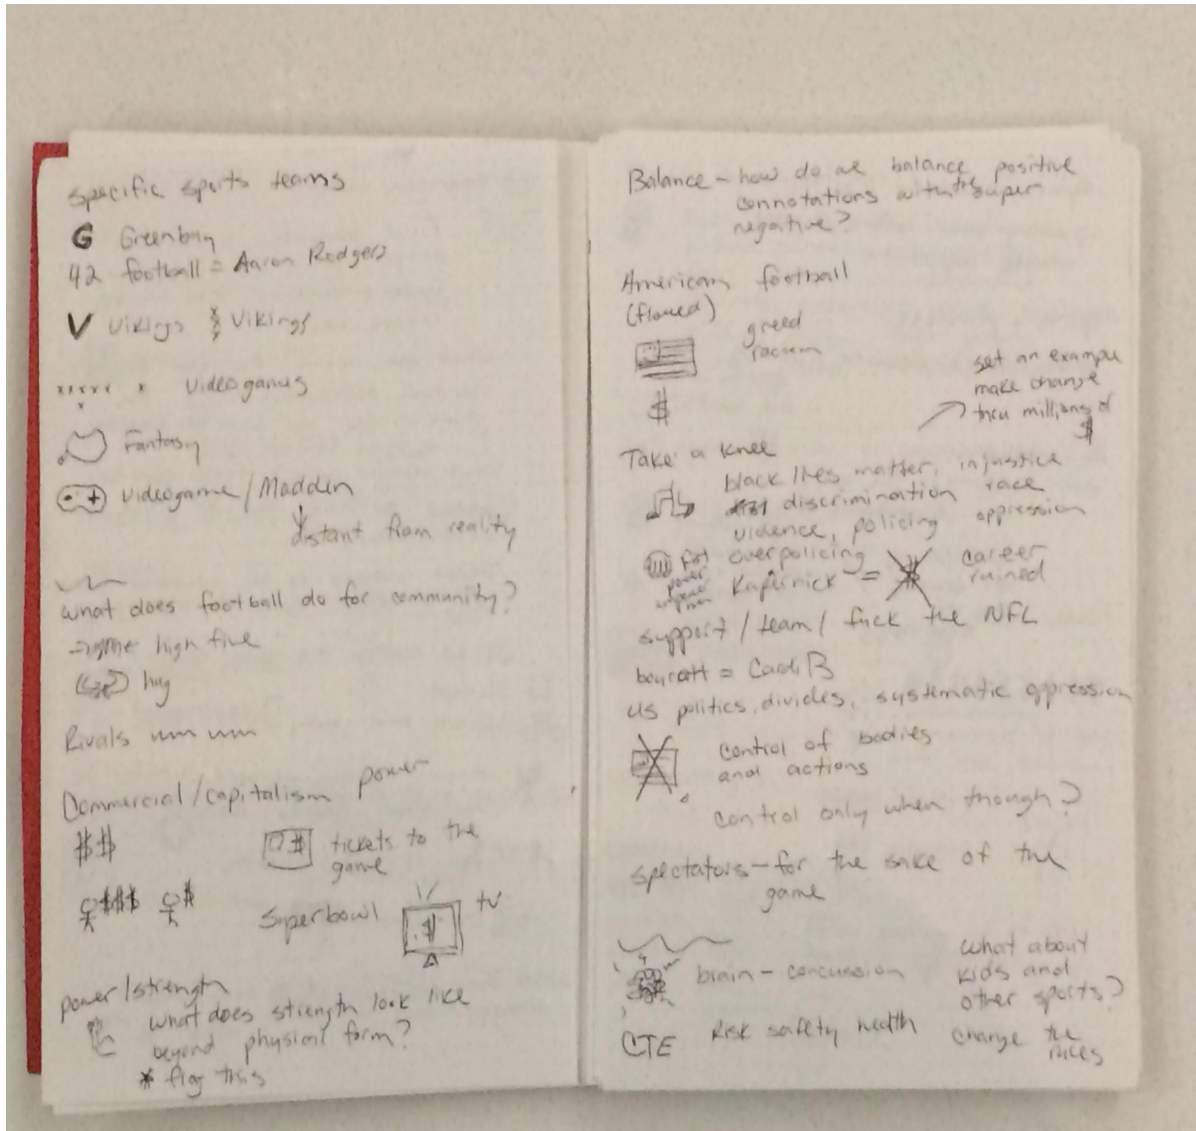 specific sports teams
G Greenbay
42 football = Aaron Rodgers
V Vikings Vikings
xxxxx x videogames
x
Fantasy
videogame/Madden
distant from reality
what does football do for community?
high five
hug
Rivals
Commercial/capitalism power
$$
$ tickets to the
game
$$$ $
Superbowl $ tv
power/strength
what does strength look like
beyond physical form?
* flag this
Balance - how do we balance positive
connotations with the super
negative?
American football
(flawed)
greed
racism
$
set an example
make change
thru millions of
$
Take a knee
black lives matter, injustice
discrimination race
violence, policing oppression
fist overpolicing
power
Kapernick = $ career
ruined
support/team/fuck the NFL
boycott = Cardi B
US politics, divides, systematic oppression
control of bodies
and actions
control only when though?
spectators - for the sake of the
game
brain - concussion
what about
kids and
other sports?
CTE Risk safety health
change the
rules